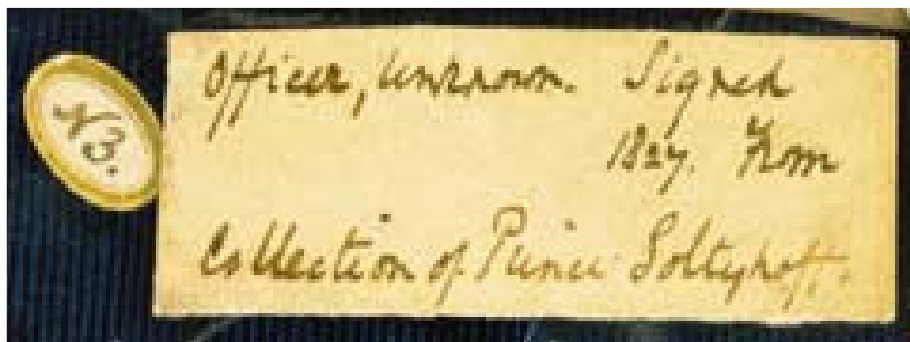 N3.
Officer, unknown. Signed
1827. From
Collection of Prince Soltykoff.